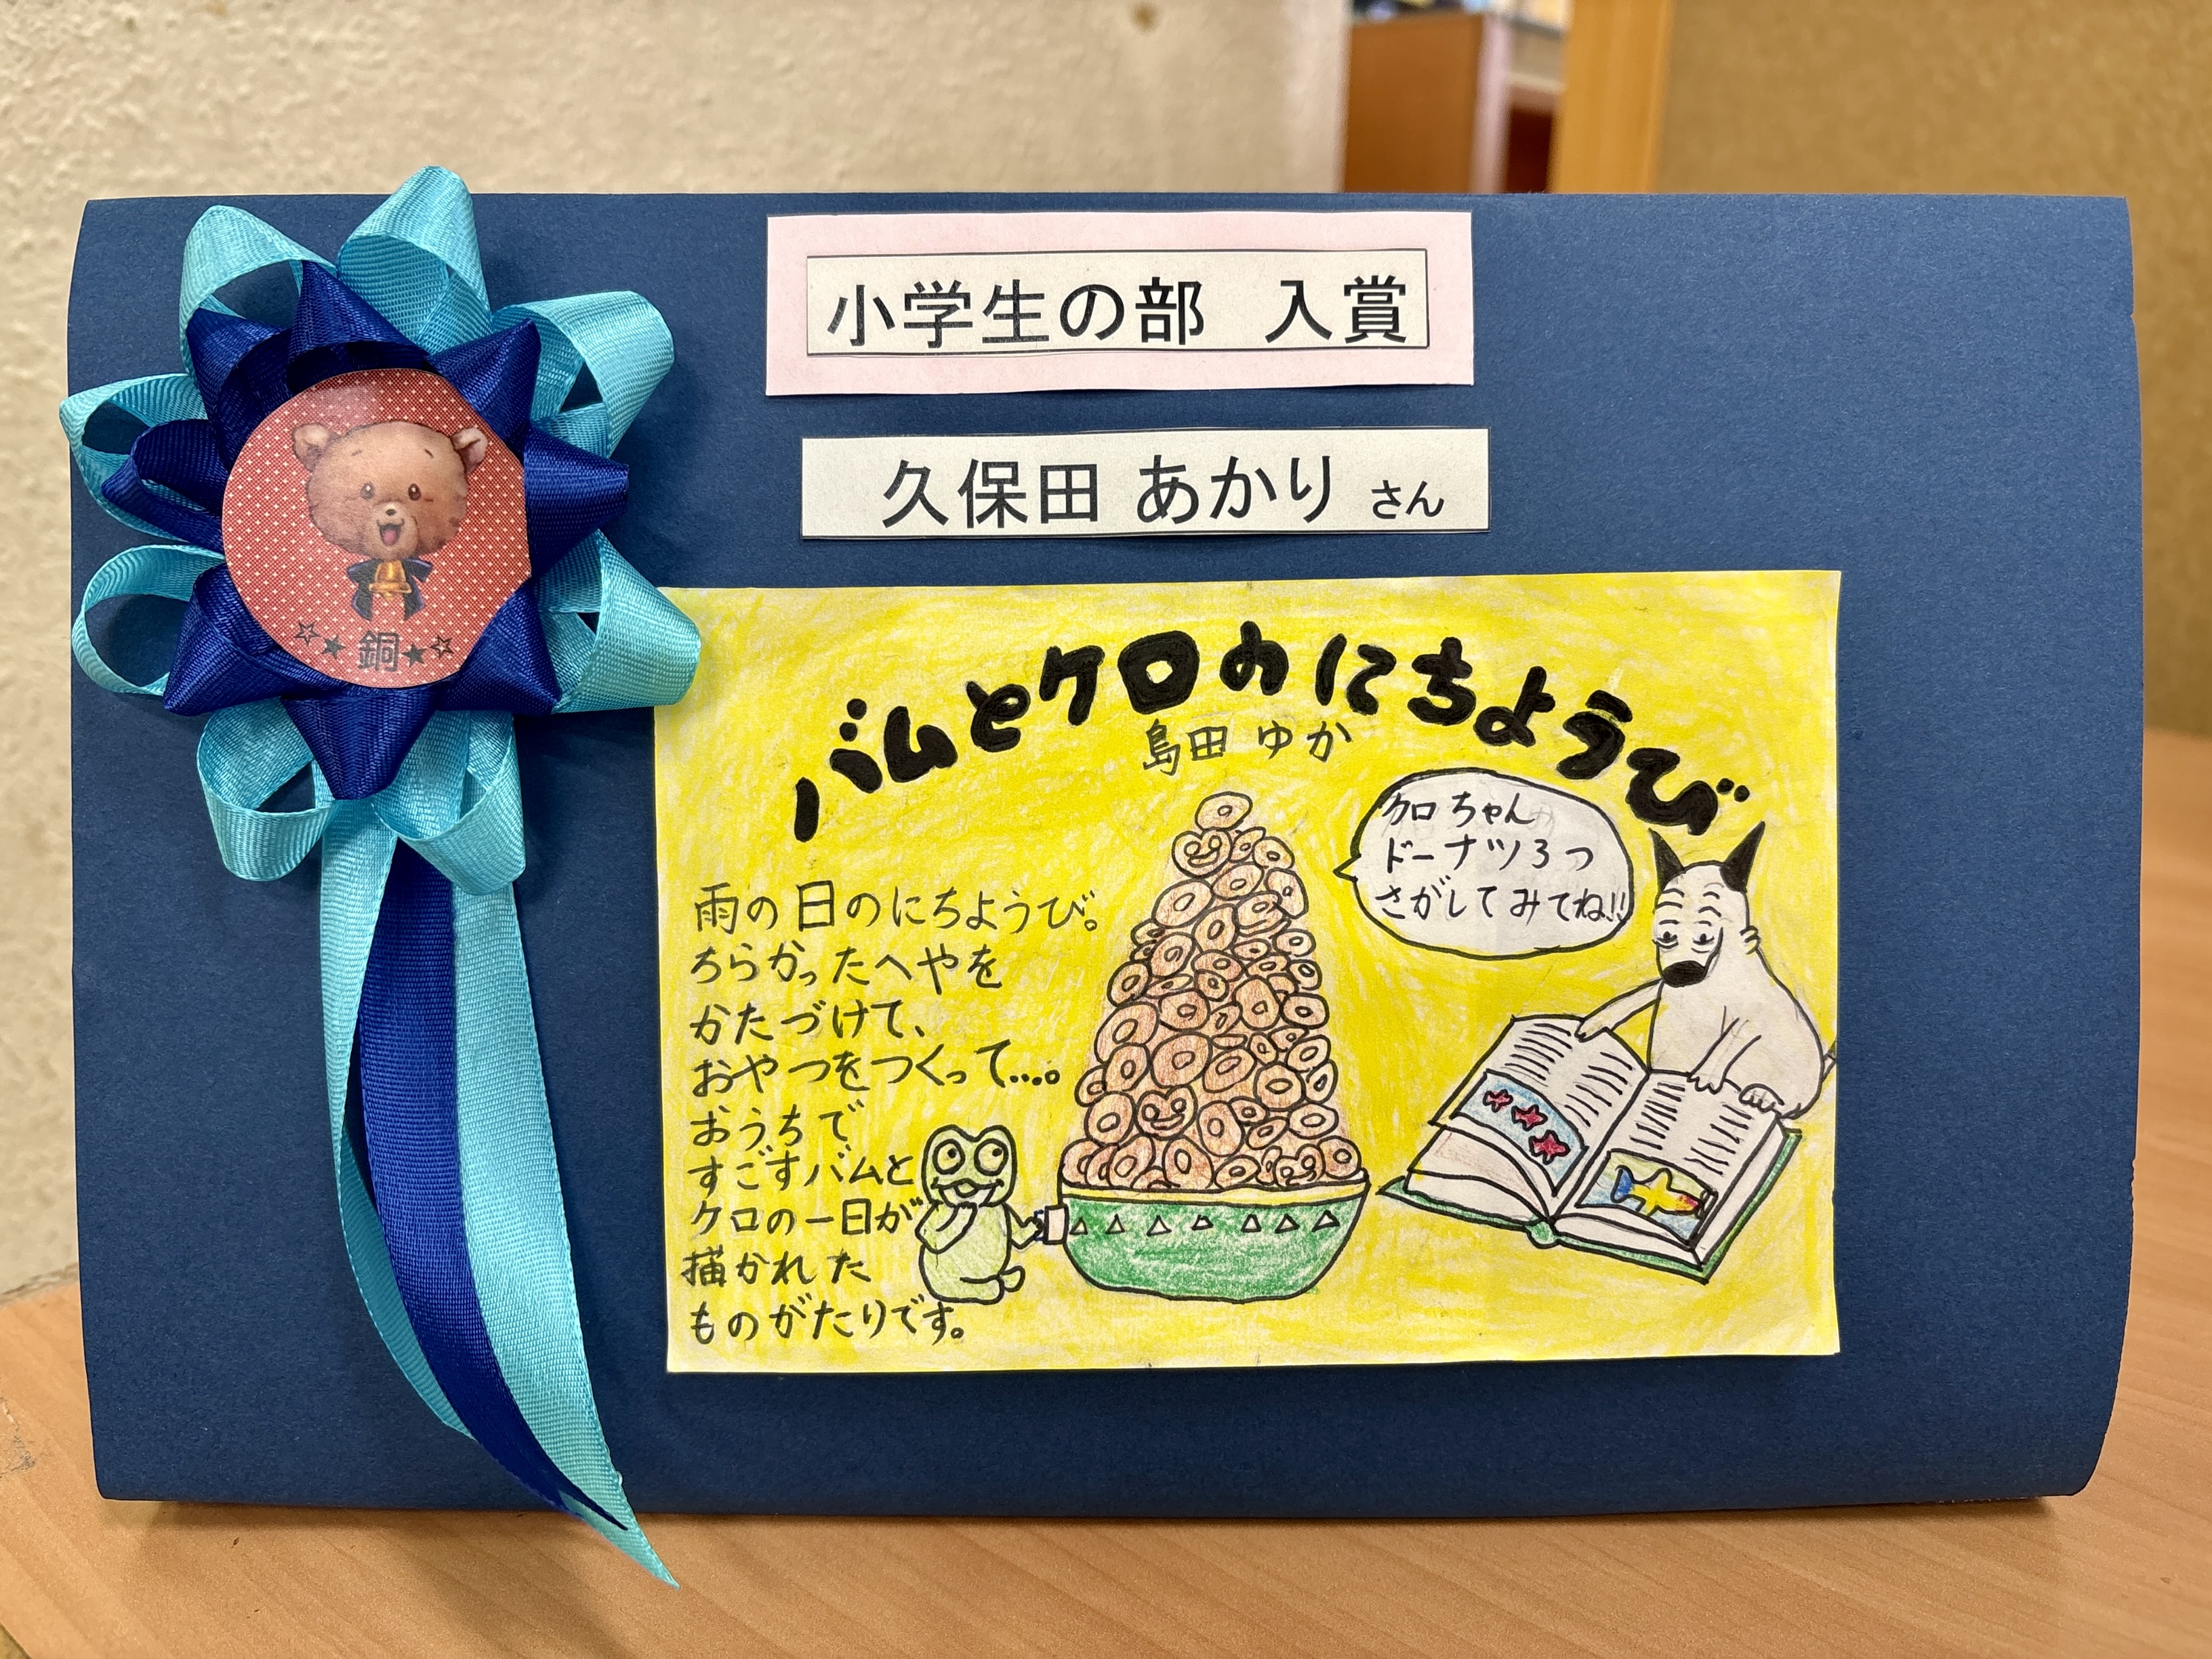 小学生の部 入賞
久保田 あかり さん
☆★ 銅 ★☆
バムとケロのにちようび
島田 ゆか
ケロちゃん
ドーナツ3つ
さがしてみてね!!
雨の日のにちようび。
ちらかったへやを
かたづけて、
おやつをつくって....。
おうちで
すごすバムと
ケロの一日が
描かれた
ものがたりです。